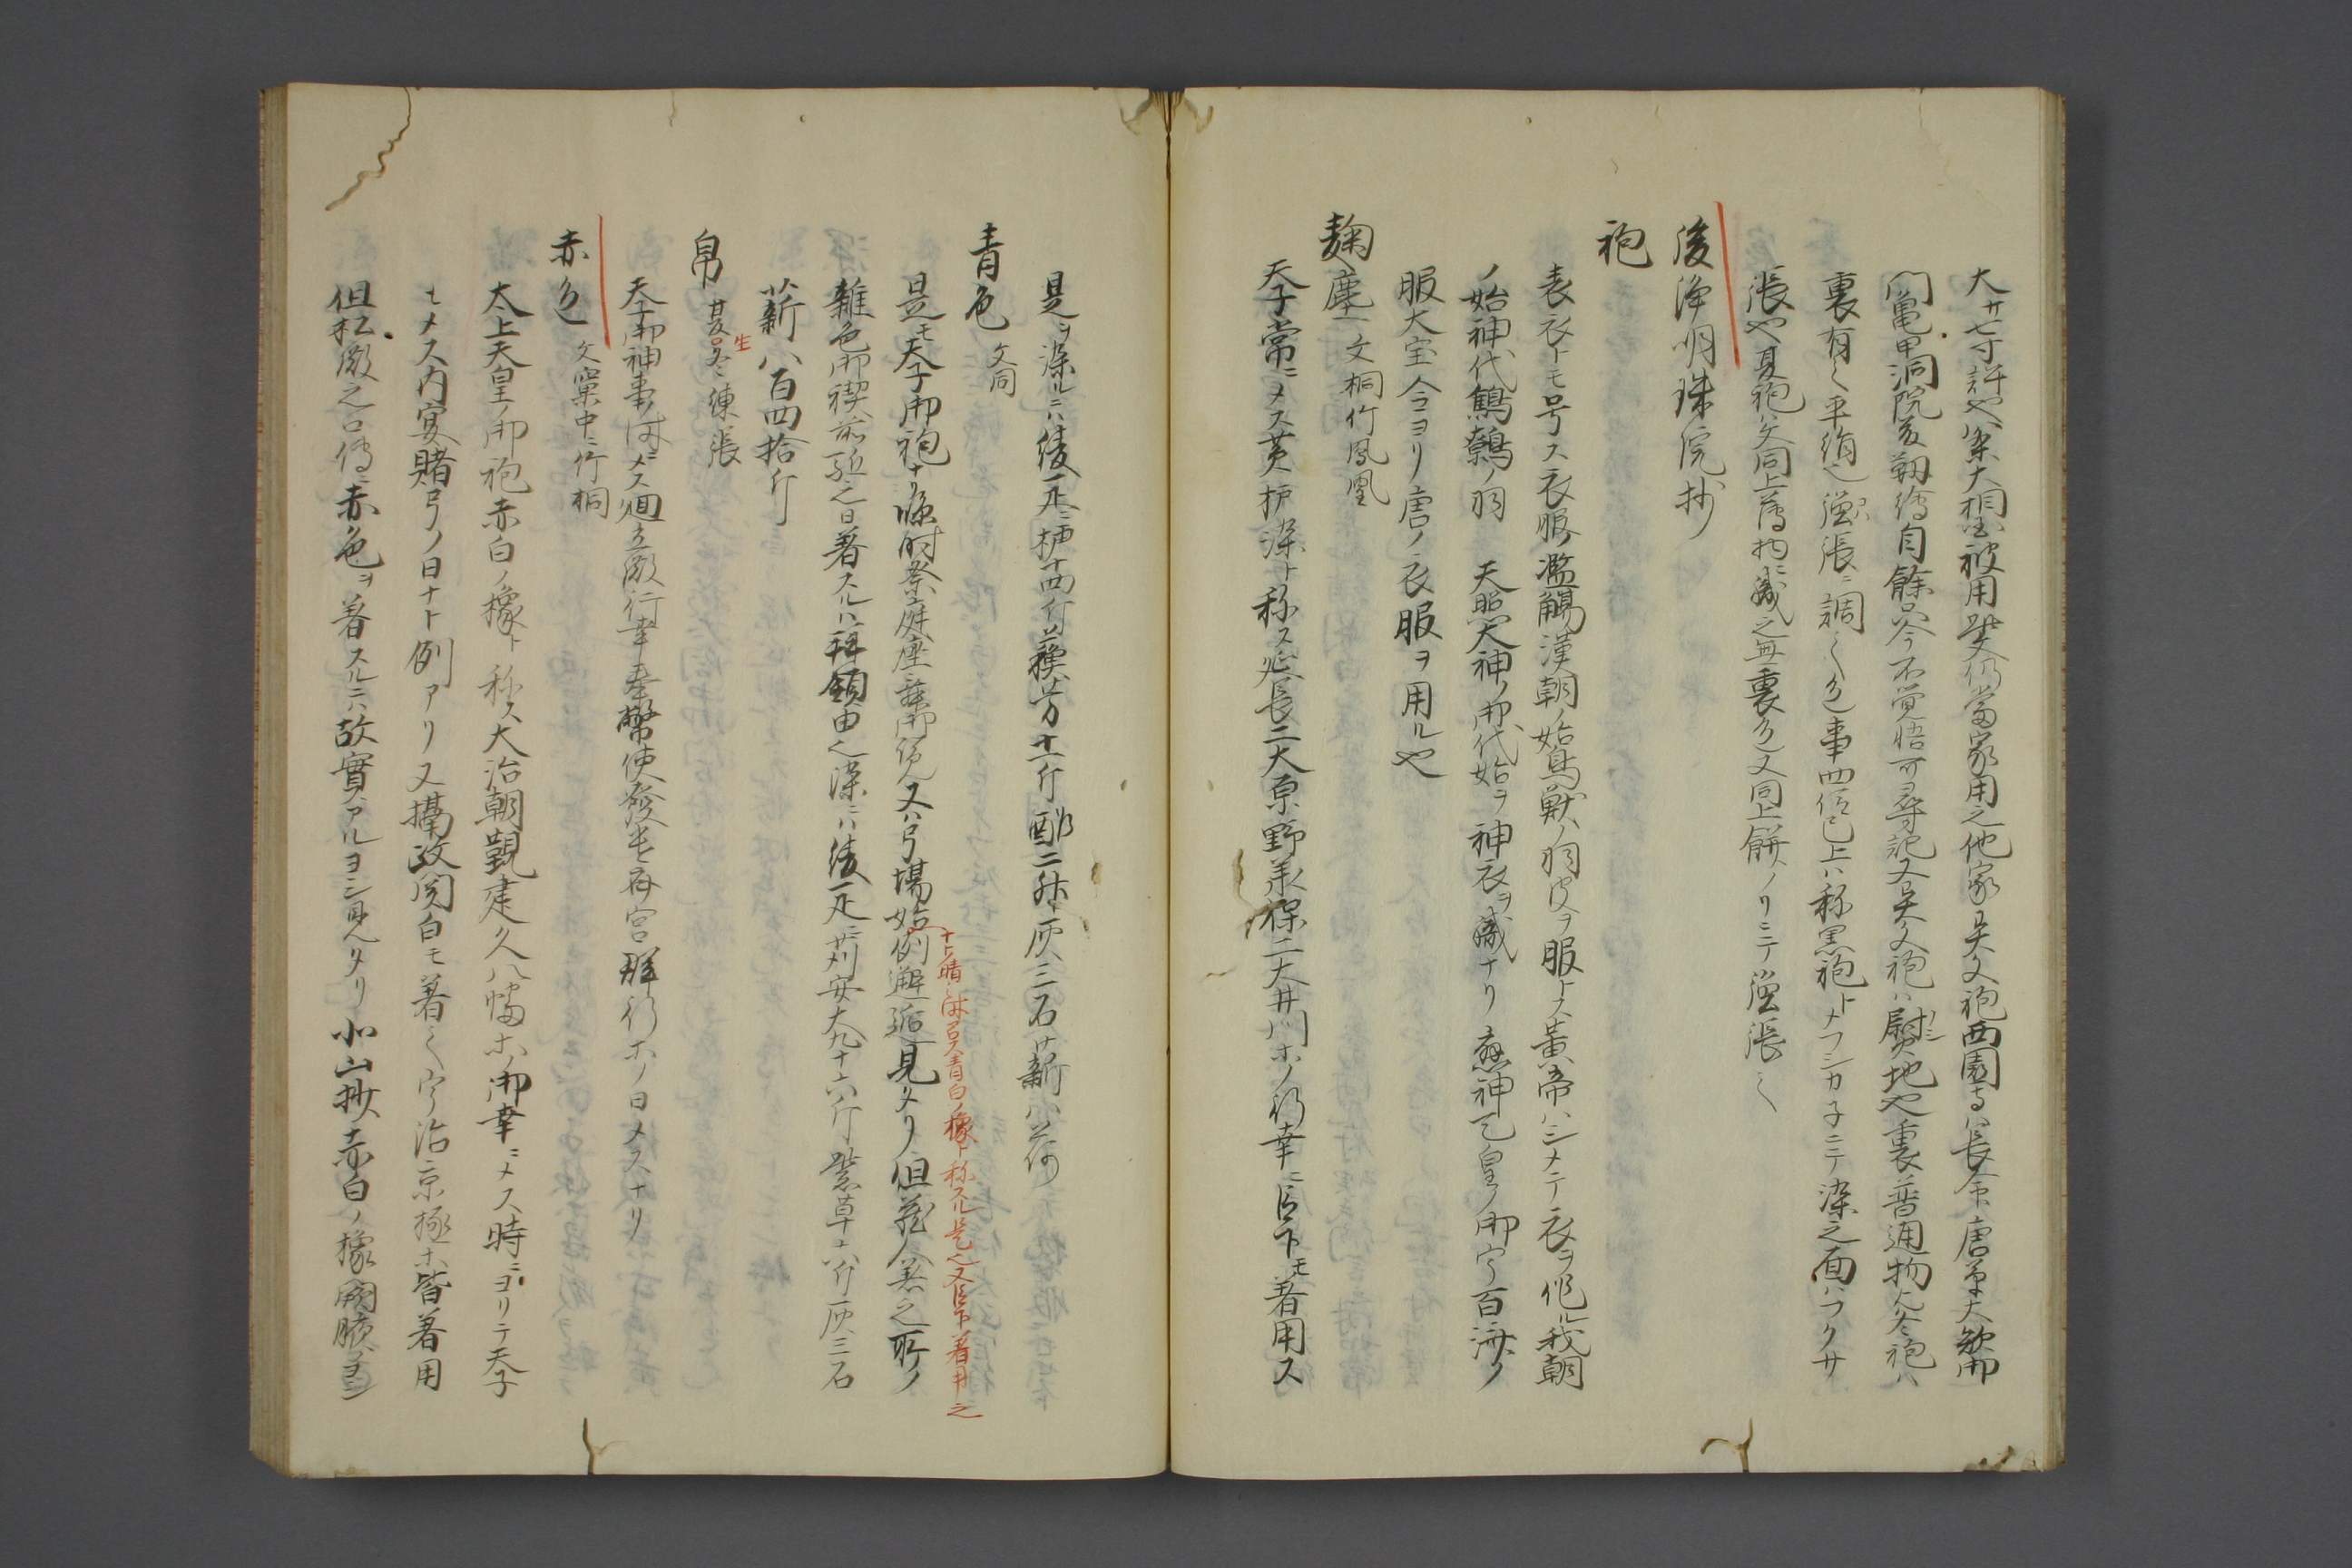 大サ七寸許也案大相國被用此文仍當家用之他家異文袍西園寺ハ長命唐草大欽御
門亀甲洞院友靱繪自餘只今不覚悟可尋記又異文袍ハ熨地也裏普通物冬袍ハ
裏有之平絹也強張ニ調之色事四位已上ハ称黒袍トメフシカ子ニテ染之面ハフクサ
張也夏袍ハ文同上薄物ニ織之無裏色文同上餅ノリニテ強張之
後浄明珠院抄
袍
表衣トモ号ス衣服ノ濫觴漢朝ノ始鳥獣ノ羽皮ヲ服トス黄帝ハシメテ衣ヲ作ル我朝
ノ始神代鷦鷯ノ羽 天照大神ノ御代始テ神衣ヲ織ナリ應神天皇ノ御宇百済ノ
服大宝令ヨリ唐ノ衣服ヲ用ル也
麹塵 文桐竹鳳凰
天子常ニメス黄櫨染ト称ス延長二大原野承保二大井川ホノ行幸ニ臣下モ著用ス
是ヲ染ルニハ綾一疋ニ櫨十四斤蘇芳十一斤酢二升灰三石薪八荷
青色 文同
是モ天子御袍ナリ臨時祭庭座舞御覧又ハ弓場始
ナト晴ニ時召異青白ノ橡ト称スル是也又臣下著用之
例邂逅見タリ但蔵人着之所ノ
雑色御禊前駈之日著スルハ拝領由也染ニハ綾一疋ニ苅安大九十六斤紫草六斤灰三石
薪八百四拾斤
帛 夏生冬練張
天子御神事時メス廻立殿行幸奉幣使發遣斎宮群行ホノ日メスナリ
赤色 文窠中ニ竹桐
太上天皇ノ御袍赤白ノ橡ト称ス大治朝覲建久八幡ホノ御幸ニメス時ニヨリテ天子
モメス内宴賭弓ノ日ナト例アリ又攝政関白モ著之宇治京極ホ皆著用
但松殿之口傳ニ赤色ヲ著スルニハ故實アルヨシ見ヘタリ小山抄赤白ノ橡闕腋ヨシ